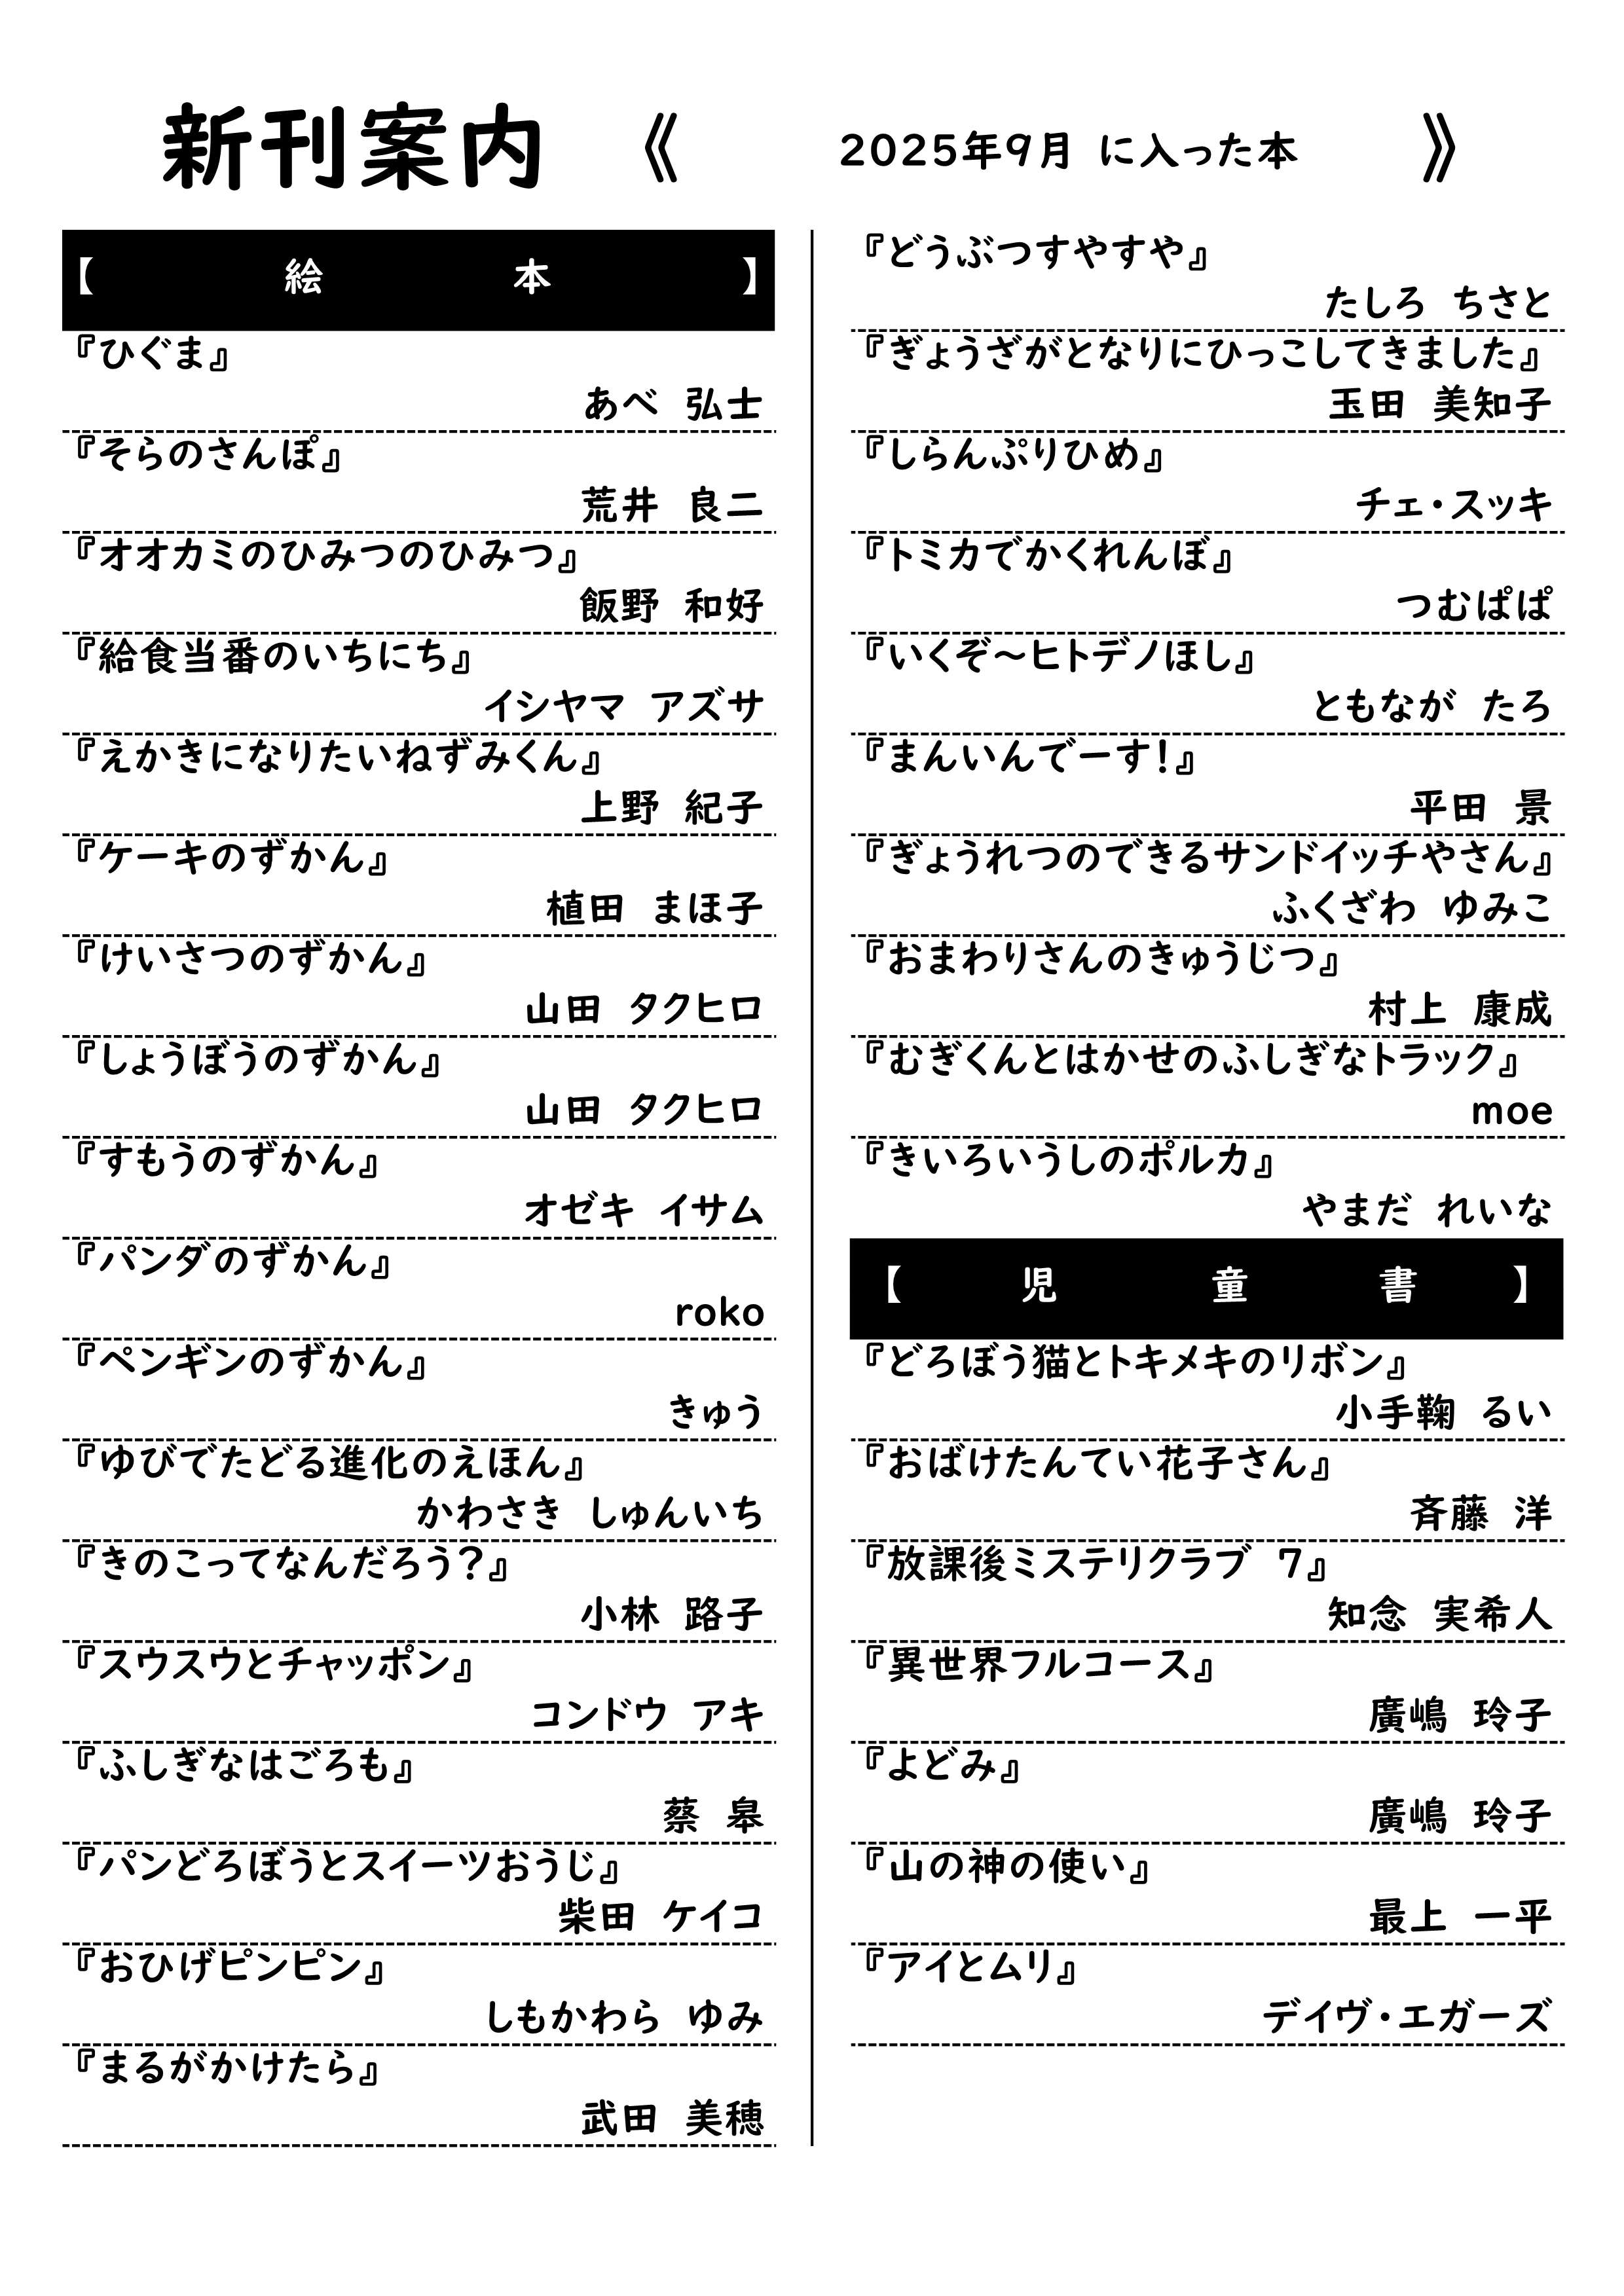 新刊案内 《 2025年9月 に入った本 》
【 絵 本 】
『ひぐま』
あべ 弘士
『そらのさんぽ』
荒井 良二
『オオカミのひみつのひみつ』
飯野 和好
『給食当番のいちにち』
イシヤマ アズサ
『えかきになりたいねずみくん』
上野 紀子
『ケーキのずかん』
植田 まほ子
『けいさつのずかん』
山田 タクヒロ
『しょうぼうのずかん』
山田 タクヒロ
『すもうのずかん』
オゼキ イサム
『パンダのずかん』
roko
『ペンギンのずかん』
きゅう
『ゆびでたどる進化のえほん』
かわさき しゅんいち
『きのこってなんだろう?』
小林 路子
『スウスウとチャッポン』
コンドウ アキ
『ふしぎなはごろも』
蔡 皋
『パンどろぼうとスイーツおうじ』
柴田 ケイコ
『おひげピンピン』
しもかわら ゆみ
『まるがかけたら』
武田 美穂
『どうぶつすやすや』
たしろ ちさと
『ぎょうざがとなりにひっこしてきました』
玉田 美知子
『しらんぷりひめ』
チェ・スッキ
『トミカでかくれんぼ』
つむぱぱ
『いくぞ~ヒトデノほし』
ともなが たろ
『まんいんでーす!』
平田 景
『ぎょうれつのできるサンドイッチやさん』
ふくざわ ゆみこ
『おまわりさんのきゅうじつ』
村上 康成
『むぎくんとはかせのふしぎなトラック』
moe
『きいろいうしのポルカ』
やまだ れいな
【 児 童 書 】
『どろぼう猫とトキメキのリボン』
小手鞠 るい
『おばけたんてい花子さん』
斉藤 洋
『放課後ミステリクラブ 7』
知念 実希人
『異世界フルコース』
廣嶋 玲子
『よどみ』
廣嶋 玲子
『山の神の使い』
最上 一平
『アイとムリ』
デイヴ・エガーズ